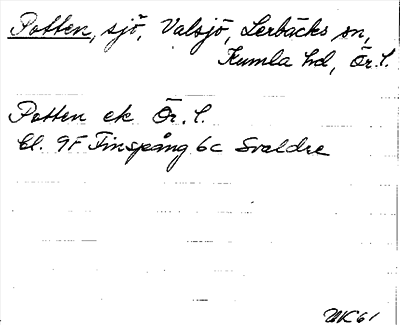 Potten, sjö, Valsjö, Lerbäcks sn,
Kumla hd, Ör. l.
Potten ek Ör. l.
bl. 9F Finspång 6c Svaldre
MK 61